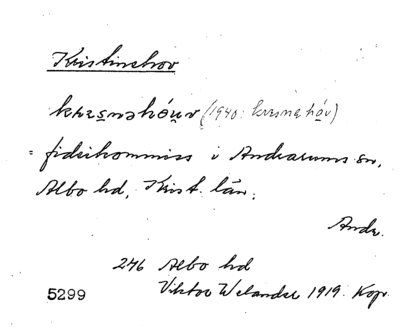 Kristinehov
krɩsnəhóu̯v (1940: krɩsnəhǫv)
= fideikommiss i Andrarums sn,
Albo hd, Krist. län.
Andr.
246 Albo hd
5299 Viktor Welander 1919. Kop.